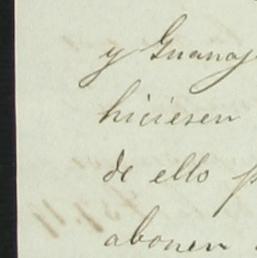 y Guanaj
hiciesen
de ello p
abonen